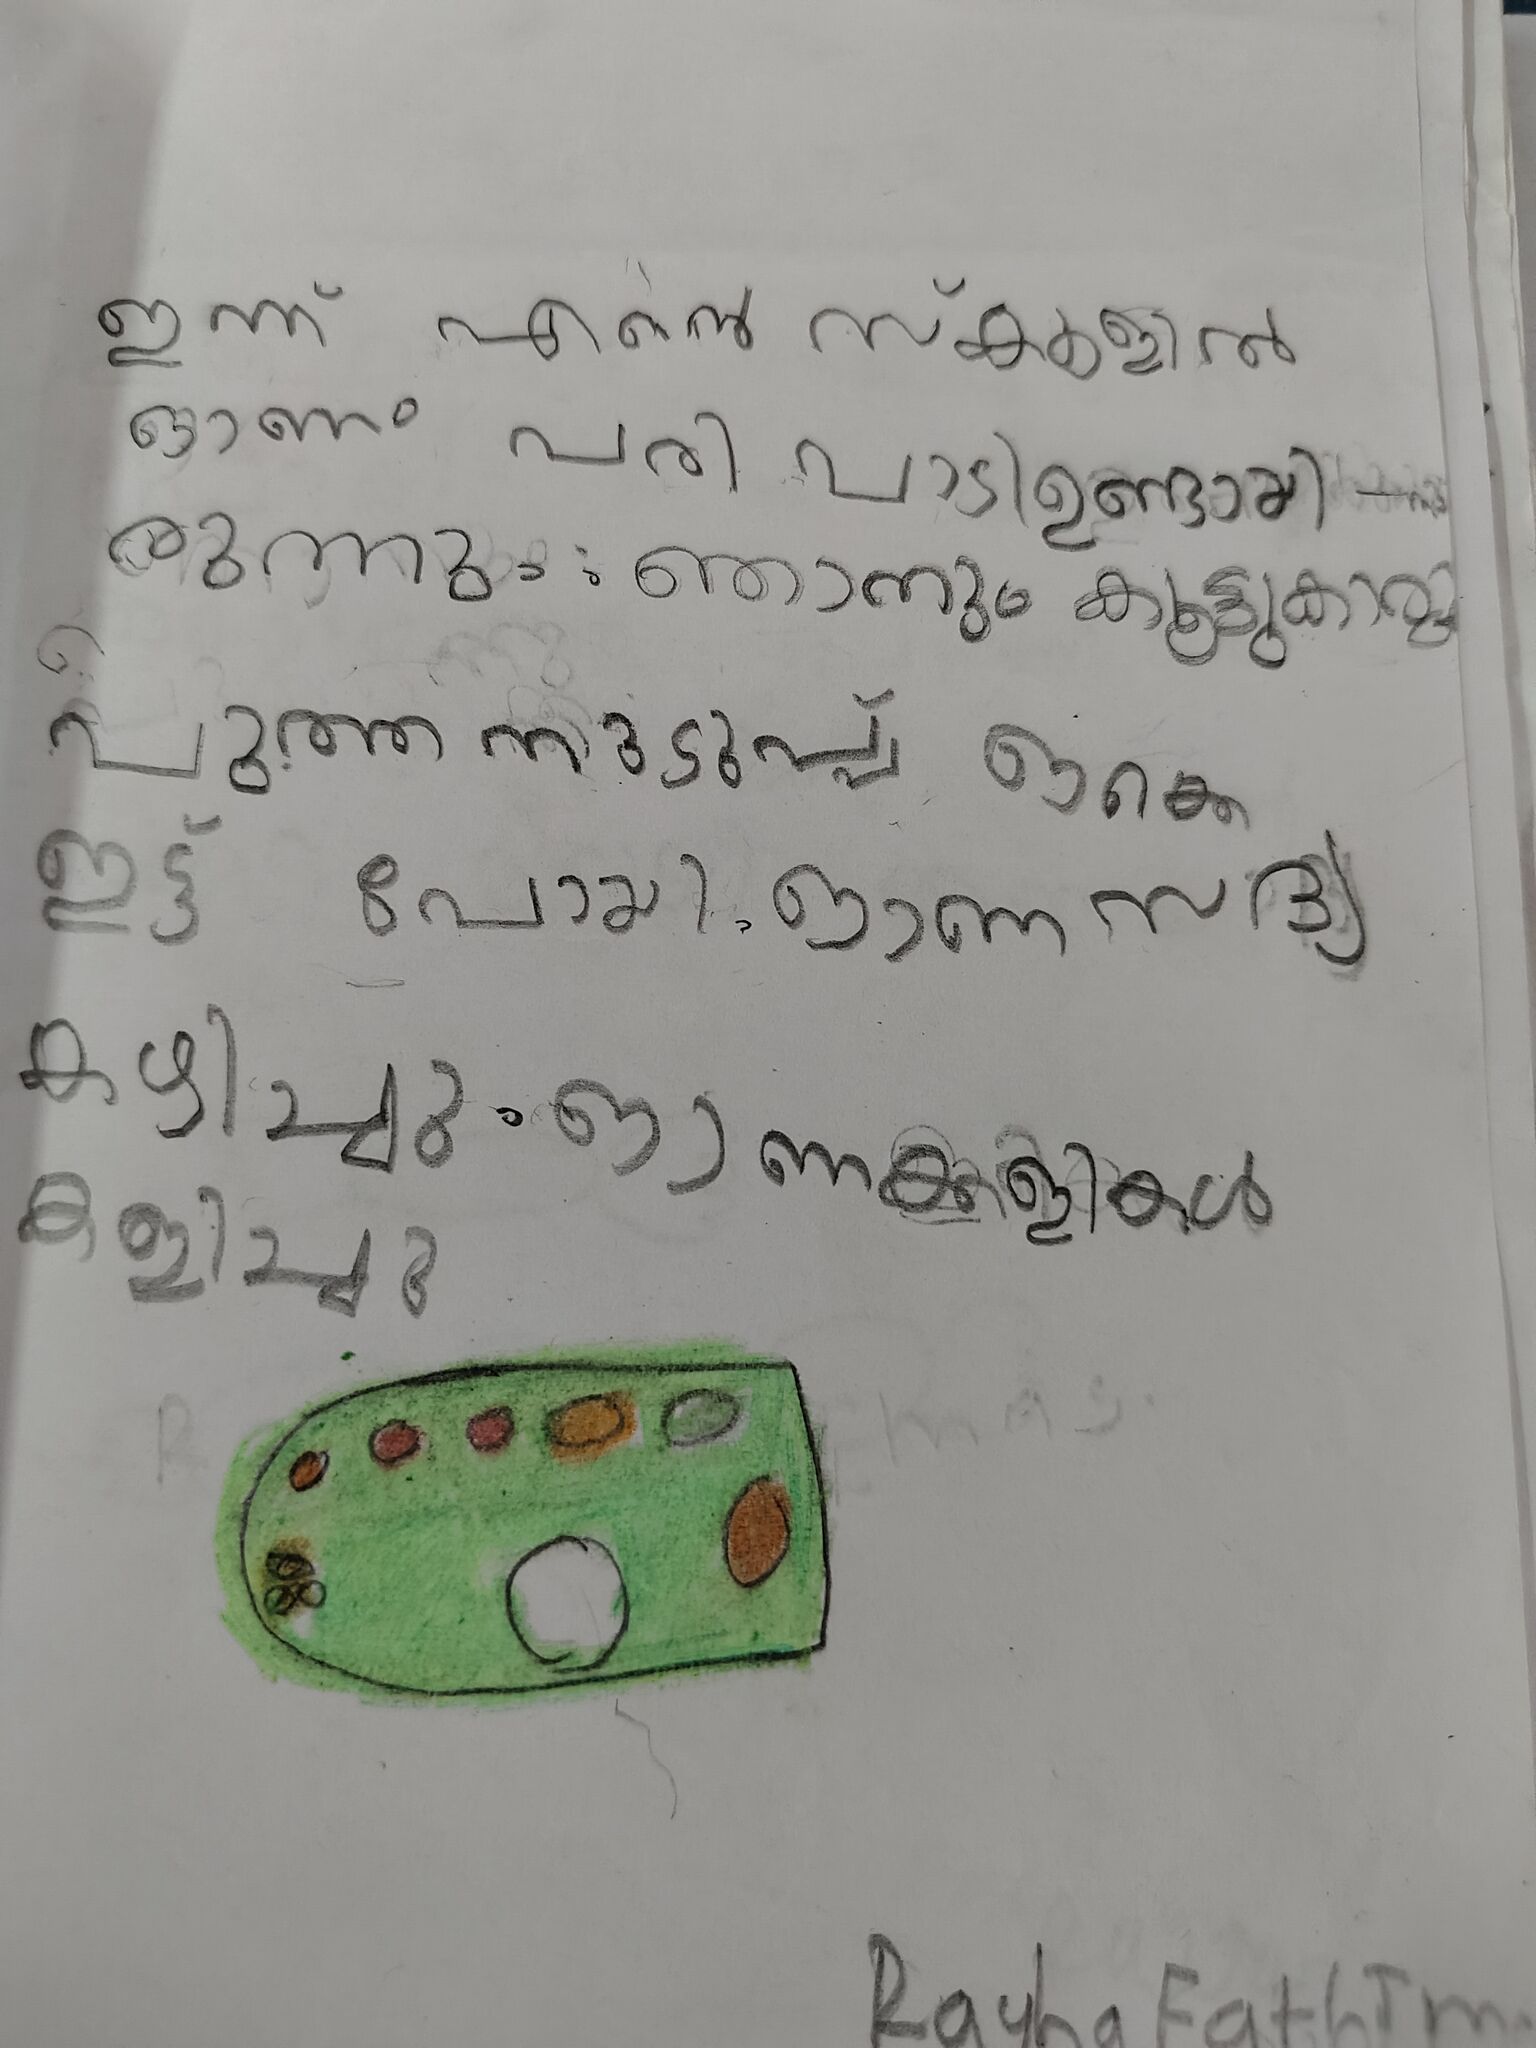 ഇന്ന് എന്റെ സ്കൂളിൽ
ഓണം പരി പാടി ഉണ്ടായി
രുന്നു. ഞാനും കൂട്ടുകാരും
പുത്തനുടുപ്പ് ഒക്കെ
ഇട്ട് പോയി. ഓണ സദ്യ
കഴിച്ചു. ഓണക്കളികൾ
കളിച്ചു
Rayha FathIm